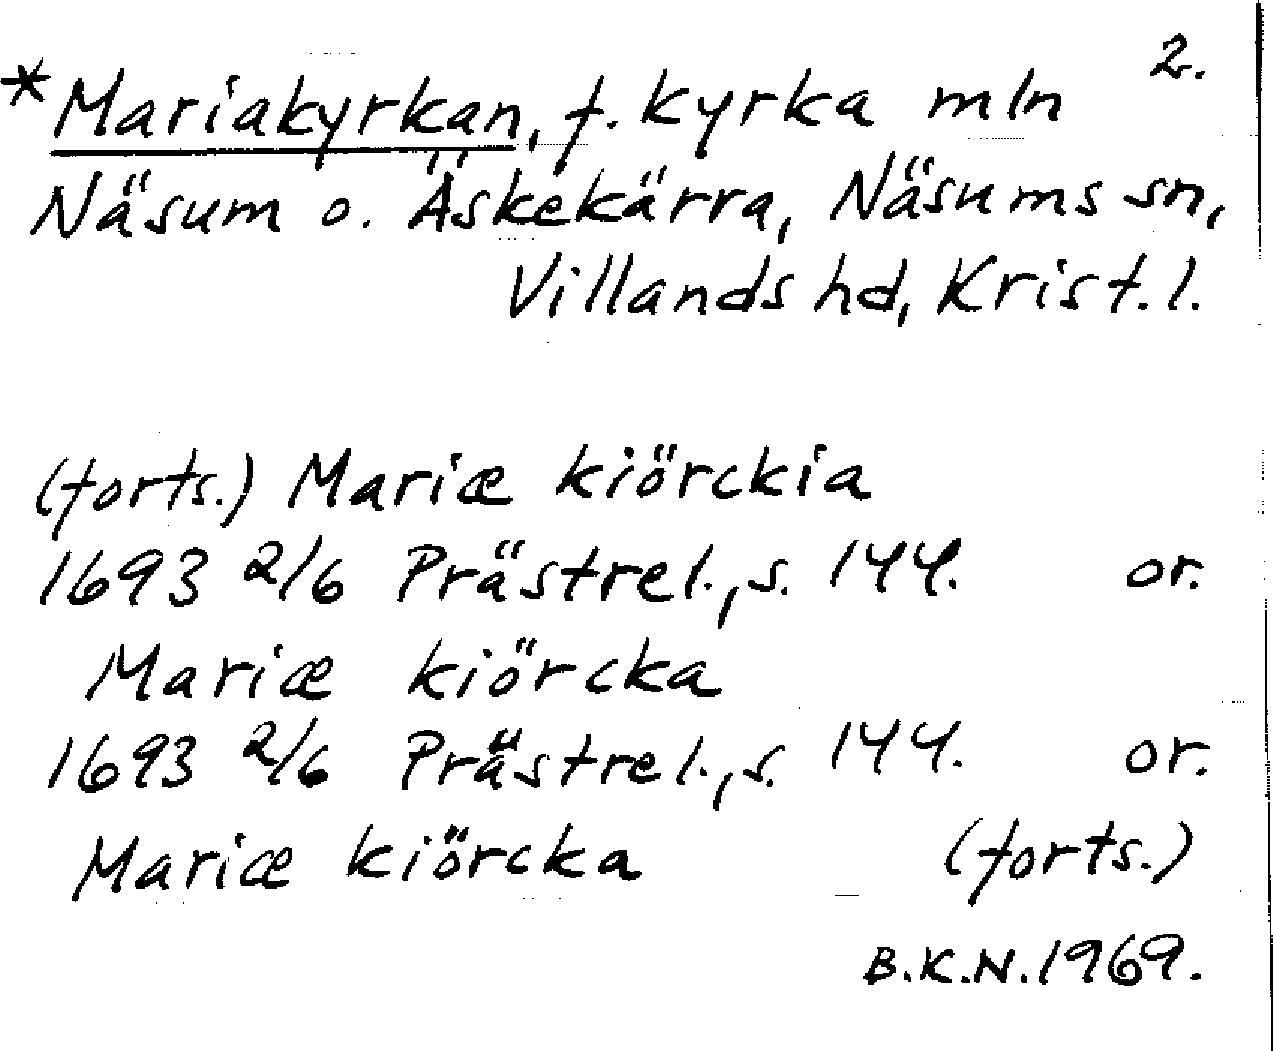 2.
*Mariakyrkan, f. kyrka mln
Näsum o. Äskekärra, Näsums sn,
Villands hd, Krist. l.
(forts.) Mariæ kiörckia
1693 2/6 Prästrel., s. 144. or.
Mariæ kiörcka
1693 2/6 Prästrel., s. 144. or.
Mariæ kiörcka (forts.)
B.K.N. 1969.